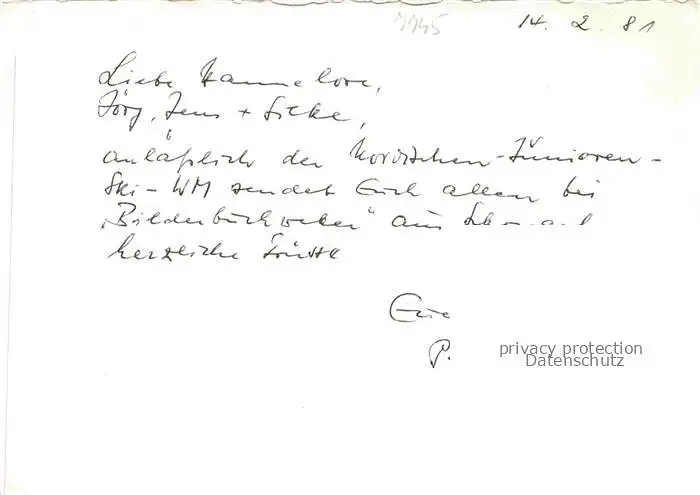 7745
14. 2. 81
Liebe Hannelore,
Jörg, Jens + Silke,
anläßlich der Nordischen-Junioren-
Ski-WM sendet Euch allen bei
„Bilderbuchwetter" aus
herzliche Grüsse
Euer
P.
privacy protection
Datenschutz